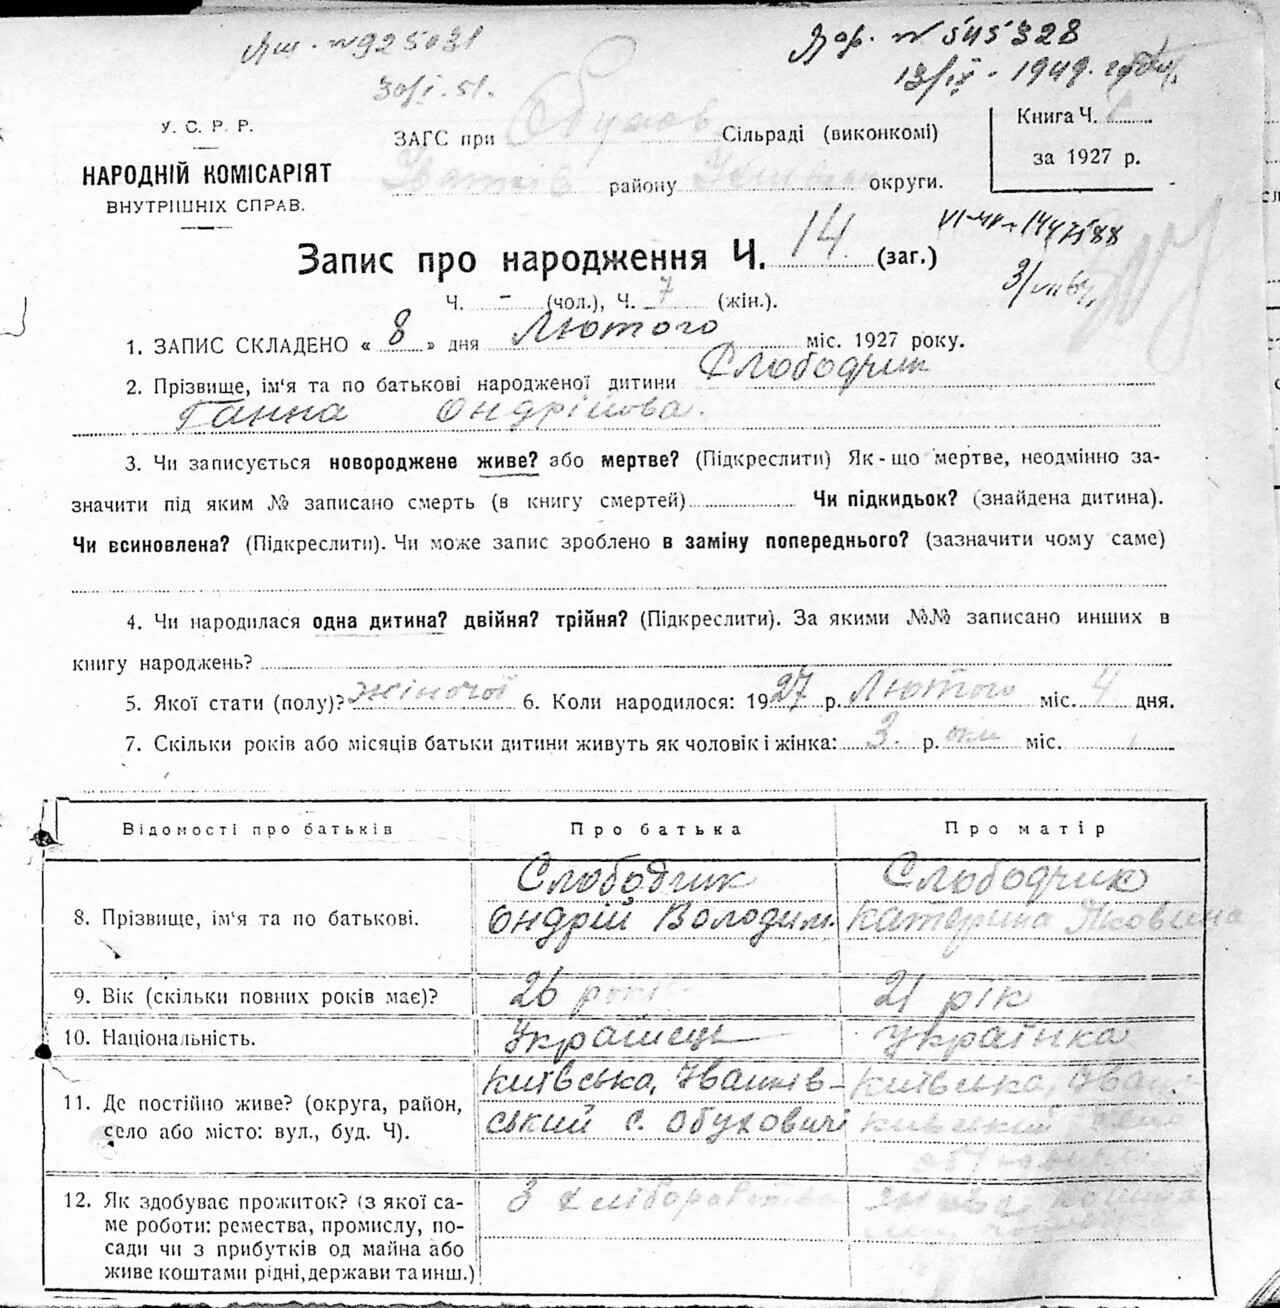 №925031
№ 545328
30/I. 51.
13/IX - 1949.
У. С. Р. Р.
НАРОДНІЙ КОМІСАРІЯТ
ВНУТРІШНІХ СПРАВ.
ЗАГС при Обухов Сільраді (виконкомі)
району округи.
Книга Ч.
за 1927 р.
Запис про народження Ч. 14 (заг.)
Ч. - (чол.), Ч. 7 (жін.).
1. ЗАПИС СКЛАДЕНО « 8 » дня Лютого міс. 1927 року.
2. Прізвище, ім‘я та по батькові народженої дитини Слободчик
Ганна Ондрійова.
3. Чи записується новороджене живе? або мертве? (Підкреслити) Як-що мертве, неодмінно за-
значити під яким № записано смерть (в книгу смертей) Чи підкидьок? (знайдена дитина).
Чи всиновлена? (Підкреслити). Чи може запис зроблено в заміну попереднього? (зазначити чому саме)
4. Чи народилася одна дитина? двійня? трійня? (Підкреслити). За якими №№ записано инших в
книгу народжень?
5. Якої стати (полу)? жіночої 6. Коли народилося: 1927 р. Лютого міс. 4 дня.
7. Скільки років або місяців батьки дитини живуть як чоловік і жінка: 3 р. міс.
Відомості про батьків Про батька Про матір
8. Прізвище, ім‘я та по батькові. Слободчик Ондрій Володим. Слободчик Катерина Яковівна
9. Вік (скільки повних років має)? 26 років 21 рік
10. Національність. Українець Українка
11. Де постійно живе? (округа, район,
село або місто: вул., буд. Ч). Київська, Іванків-
ський с. Обуховичі Київська, Іван-
ківський село
12. Як здобуває прожиток? (з якої са-
ме роботи: ремества, промислу, по-
сади чи з прибутків од майна або
живе коштами рідні, держави та инш.) З хліборобства